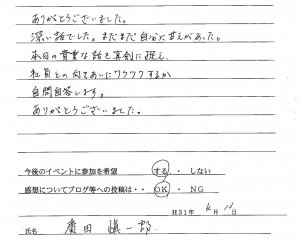 ありがとうございました。
深い話でした。まだまだ自分に甘えがあった。
本日の貴重な話を真剣に捉え、
社員との向きあいにワクワクするか
自問自答します。
ありがとうございました。
今後のイベントに参加を希望 する ・ しない
感想についてブログ等への投稿は・・ OK ・ NG
H31年 4月 10日
氏名 廣田 慎一郎